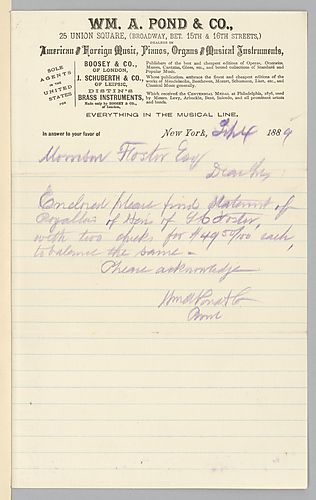 WM. A. POND & CO.,
25 UNION SQUARE, (BROADWAY, BET. 15TH & 16TH STREETS,)
DEALERS IN
American and Foreign Music, Pianos, Organs and Musical Instruments,
SOLE AGENTS IN THE UNITED STATES FOR
BOOSEY & CO.,
OF LONDON,
J. SCHUBERTH & CO.,
OF LEIPSIC,
DISTIN'S
BRASS INSTRUMENTS,
Made only by BOOSEY & CO.,
of London,
Publishers of the best and cheapest editions of Operas, Oratorios, Masses, Cantatas, Glees, etc., and bound collections of Standard and Popular Music.
Whose publications embrace the finest and cheapest editions of the works of Mendelssohn, Beethoven, Mozart, Schumann, Liszt, etc., and Classical Music generally.
Which received the CENTENNIAL MEDAL at Philadelphia, 1876, used by Messrs. Levy, Arbuckle, Bent, and all prominent artists and bands.
EVERYTHING IN THE MUSICAL LINE.
In answer to your favor of
New York, Sept 4 1889
Morrison Foster Esq
Dear Sir:
Enclosed please find statement of
Royalties of Heirs of S C Foster,
with two checks for $49 50/100 each
to balance the same -
Please acknowledge
Wm A Pond & Co